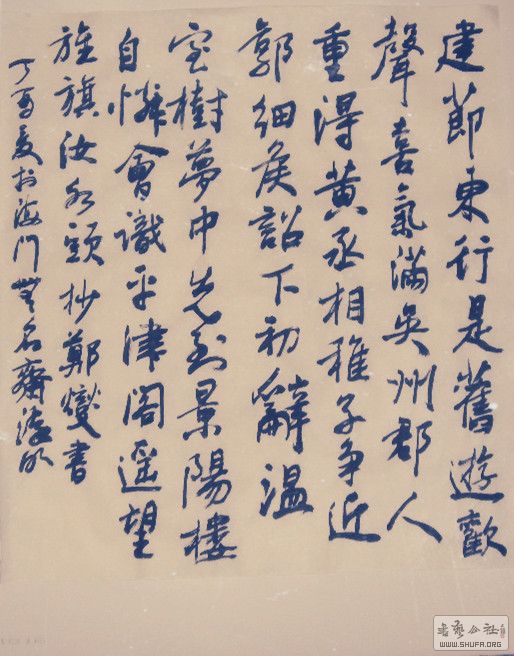 建節東行是舊遊歡
聲喜氣滿吳州郡人
重得黄丞相稚子争近
郭細侯詔下初辭温
室樹夢中先到景陽樓
自憐會識平津閣遥望
旌旗汝水頭抄鄭燮書
丁酉夏於海門無名齋
書藝公社
WWW.SHUFA.ORG